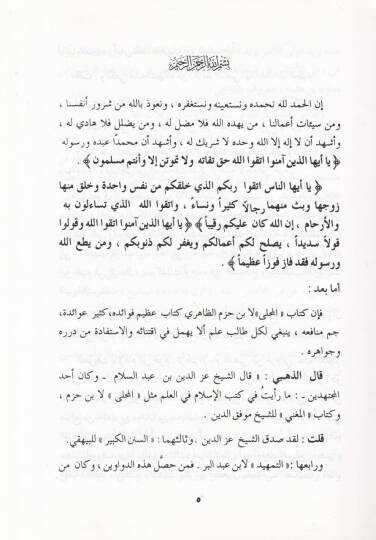 بسم الله الرحمن الرحيم
إن الحمد لله نحمده ونستعينه ونستغفره ، ونعوذ بالله من شرور أنفسنا ،
ومن سيئات أعمالنا ، من يهده الله فلا مضل له ، ومن يضلل فلا هادي له ،
وأشهد أن لا إله إلا الله وحده لا شريك له ، وأشهد أن محمدًا عبده ورسوله
﴿ يا أيها الذين آمنوا اتقوا الله حق تقاته ولا تموتن إلا وأنتم مسلمون ﴾ .
﴿ يا أيها الناس اتقوا ربكم الذي خلقكم من نفس واحدة وخلق منها
زوجها وبث منهما رجالاً كثيراً ونساءً ، واتقوا الله الذي تساءلون به
والأرحام ، إن الله كان عليكم رقيباً ﴾﴿ يا أيها الذين آمنوا اتقوا الله وقولوا
قولاً سديداً ، يصلح لكم أعمالكم ويغفر لكم ذنوبكم ، ومن يطع الله
ورسوله فقد فاز فوزاً عظيماً ﴾ .
أما بعد :
فإن كتاب « المحلى»لا بن حزم الظاهري كتاب عظيم فوائده،كثير عوائدة،
جم منافعه ، ينبغي لكل طالب علم ألا يهمل في اقتنائه والاستفادة من درره
وجواهره .
قال الذهبي : « قال الشيخ عز الدين بن عبد السلام ـ وكان أحد
المجتهدين ـ : ما رأيتُ في كتب الإسلام في العلم مثل « المحلى » لا بن حزم ،
وكتاب « المغني » للشيخ موفق الدين .
قلت : لقد صدق الشيخ عز الدين . وثالثهما: « السنن الكبير » للبيهقي.
ورابعها :« التمهيد » لابن عبد البر . فمن حصَّل هذه الدواوين ، وكان من
٥